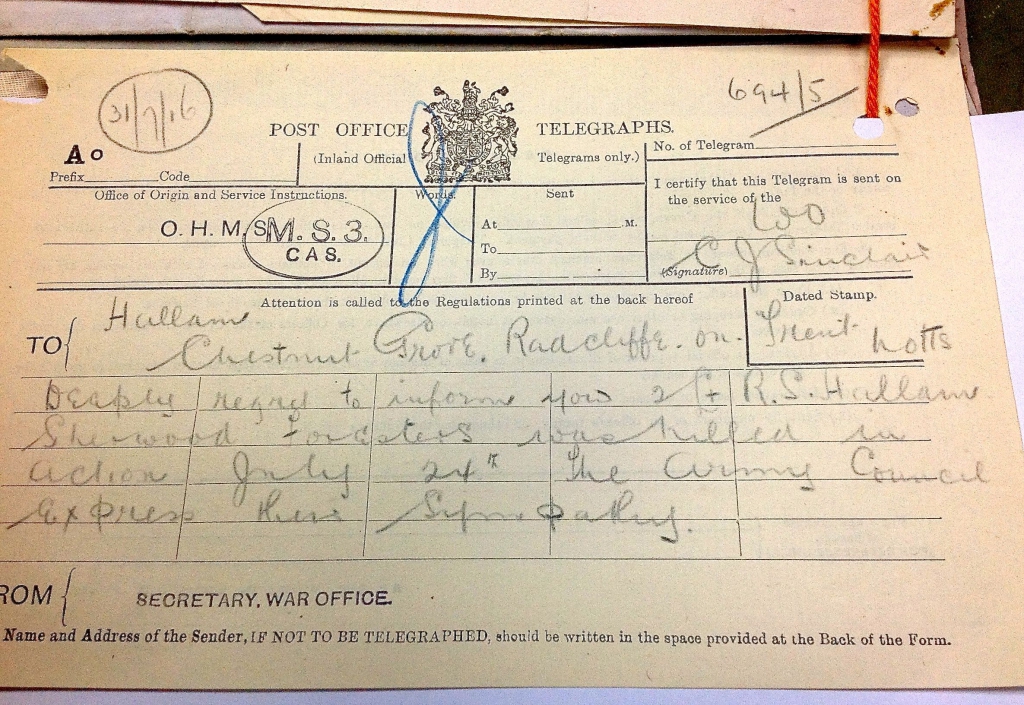 31/7/16
694/5
POST OFFICE TELEGRAPHS.
(Inland Official Telegrams only.)
No. of Telegram
A o
Prefix Code
Office of Origin and Service Instructions.
Words.
Sent
I certify that this Telegram is sent on
the service of the
WO
O. H. M. S.
M. S. 3.
CAS.
At M.
To
By
C J Sinclair
(Signature)
Attention is called to the Regulations printed at the back hereof
Dated Stamp.
TO
Hallam
Chestnut Grove. Radcliffe. on. Trent Notts
Deeply regret to inform you 2/Lt R. S. Hallam
Sherwood Foresters was killed in
action July 24th The Army Council
Express their Sympathy.
ROM
SECRETARY, WAR OFFICE.
Name and Address of the Sender, IF NOT TO BE TELEGRAPHED, should be written in the space provided at the Back of the Form.